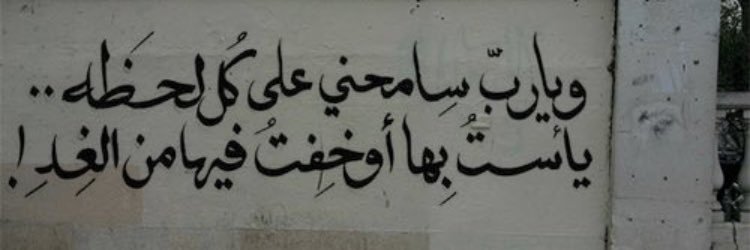 ويا ربّ سِامحني على كُل لحظَه ..
يأستُ بِها أو خفِتُ فيها من الغِدِ !